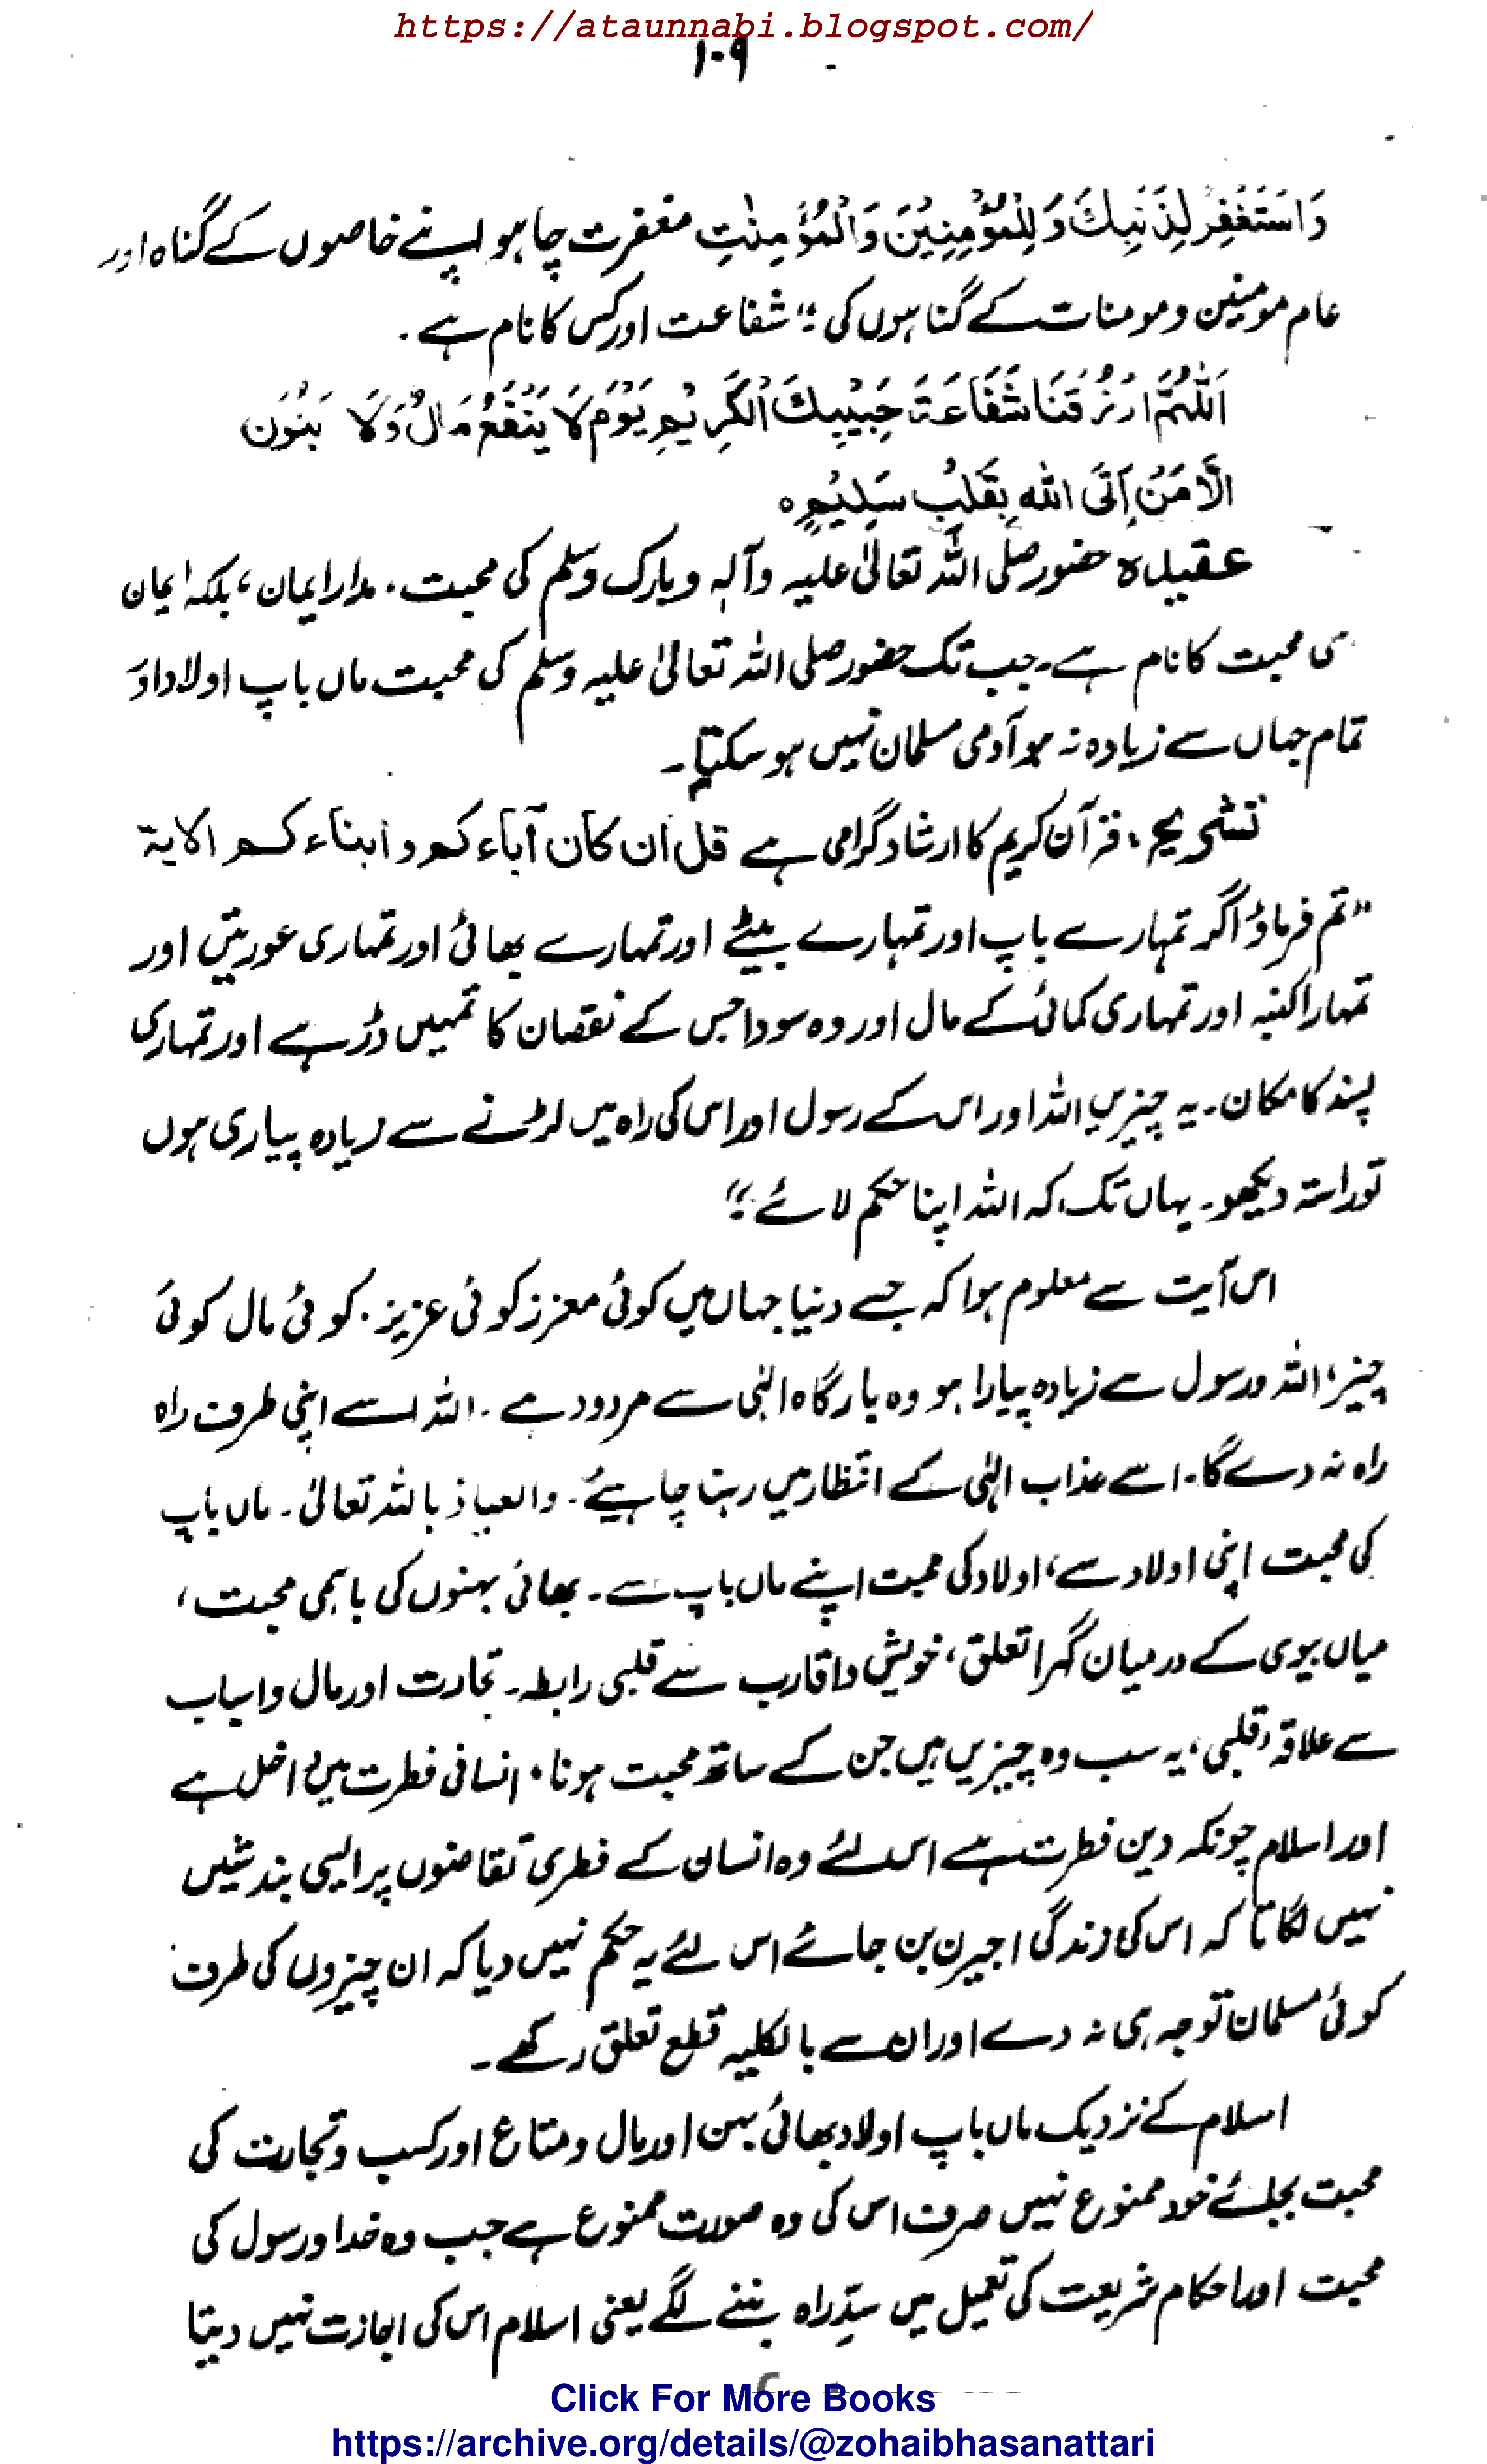 https://ataunnabi.blogspot.com/
۱۰۹
وَاسْتَغْفِرْ لِذَنْبِكَ وَلِلْمُؤْمِنِيْنَ وَالْمُؤْمِنٰتِ مغفرت چاہو اپنے خاصوں کے گناہ اور
عام مومنین و مومنات کے گناہوں کی ؛" شفاعت اور کس کا نام ہے ۔
اَللّٰهُمَّ ارْزُقْنَا شَفَاعَةَ حَبِيْبِكَ الْكَرِيْمِ يَوْمَ لَا يَنْفَعُ مَالٌ وَّلَا بَنُوْنَ
اِلَّا مَنْ اَتَى اللهِ بِقَلْبٍ سَلِيْمٍ ہ
عقیدہ حضور صلی اللہ تعالیٰ علیہ وآلہ وبارک وسلم کی محبت ۔ مدار ایمان ، بلکہ ایمان
ی محبت کا نام ہے ۔ جب تک حضور صلی اللہ تعالیٰ علیہ وسلم کی محبت ماں باپ اولاد اور
تمام جہاں سے زیادہ نہ ہو آدمی مسلمان نہیں ہو سکتا ۔
تشریح ، قرآن کریم کا ارشاد گرامی ہے قل ان کان آباءکم و ابناءکم الایۃ
"تم فرماؤ اگر تمہارے باپ اور تمہارے بیٹے اور تمہارے بھائی اور تمہاری عورتیں اور
تمہارا کنبہ اور تمہاری کمائی کے مال اور وہ سودا جس کے نقصان کا تمہیں ڈر ہے اور تمہاری
پسند کا مکان ۔ یہ چیزیں اللہ اور اس کے رسول اور اس کی راہ میں لڑنے سے زیادہ پیاری ہوں
تو راستہ دیکھو ۔ یہاں تک کہ اللہ اپنا حکم لائے ؛"
اس آیت سے معلوم ہوا کہ جسے دنیا جہاں میں کوئی معزز کوئی عزیز ۔ کوئی مال کوئی
چیز ، اللہ و رسول سے زیادہ پیارا ہو وہ بارگاہ الٰہی سے مردود ہے ۔ اللہ اسے اپنی طرف راہ
راہ نہ دے گا ۔ اسے عذاب الٰہی کے انتظار میں رہنا چاہیئے ۔ والعیاذ باللہ تعالیٰ ۔ ماں باپ
کی محبت اپنی اولاد سے ، اولاد کی محبت اپنے ماں باپ سے ۔ بھائی بہنوں کی باہمی محبت ،
میاں بیوی کے درمیان گہرا تعلق ، خویش و اقارب سے قلبی رابطہ ۔ تجارت اور مال و اسباب
سے علاقۂ قلبی ، یہ سب وہ چیزیں ہیں جن کے ساتھ محبت ہونا ، انسانی فطرت میں داخل ہے
اور اسلام چونکہ دین فطرت ہے اس لئے وہ انسان کے فطری تقاضوں پر ایسی بندشیں
نہیں لگاتا کہ اس کی زندگی اجیرن بن جائے اس لئے یہ حکم نہیں دیا کہ ان چیزوں کی طرف
کوئی مسلمان توجہ ہی نہ دے اور ان سے بالکلیہ قطع تعلق رکھے ۔
اسلام کے نزدیک ماں باپ اولاد بھائی بہن اور مال و متاع اور کسب و تجارت کی
محبت بجائے خود ممنوع نہیں صرف اس کی وہ صورت ممنوع ہے جب وہ خدا و رسول کی
محبت اور احکام شریعت کی تعمیل میں سدِّ راہ بننے لگے یعنی اسلام اس کی اجازت نہیں دیتا
Click For More Books
https://archive.org/details/@zohaibhasanattari